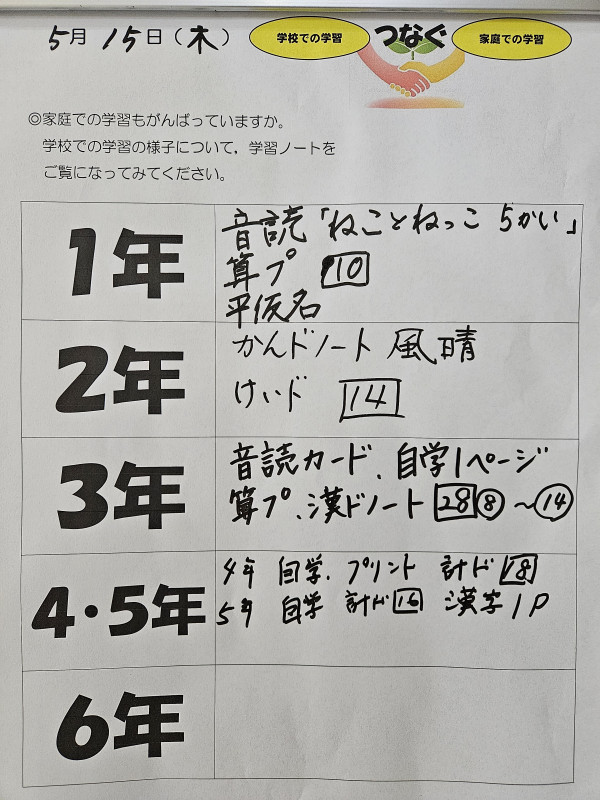 5月15日(木)
学校での学習 つなぐ 家庭での学習
◎家庭での学習もがんばっていますか。
学校での学習の様子について，学習ノートを
ご覧になってみてください。
1年
音読「ねことねっこ 5かい」
算プ 10
平仮名
2年
かんドノート 風 晴
けいド 14
3年
音読カード、自学1ページ
算プ、漢ドノート 28⑧～⑭
4・5年
4年 自学、プリント 計ド 18
5年 自学 計ド 16 漢字1P
6年